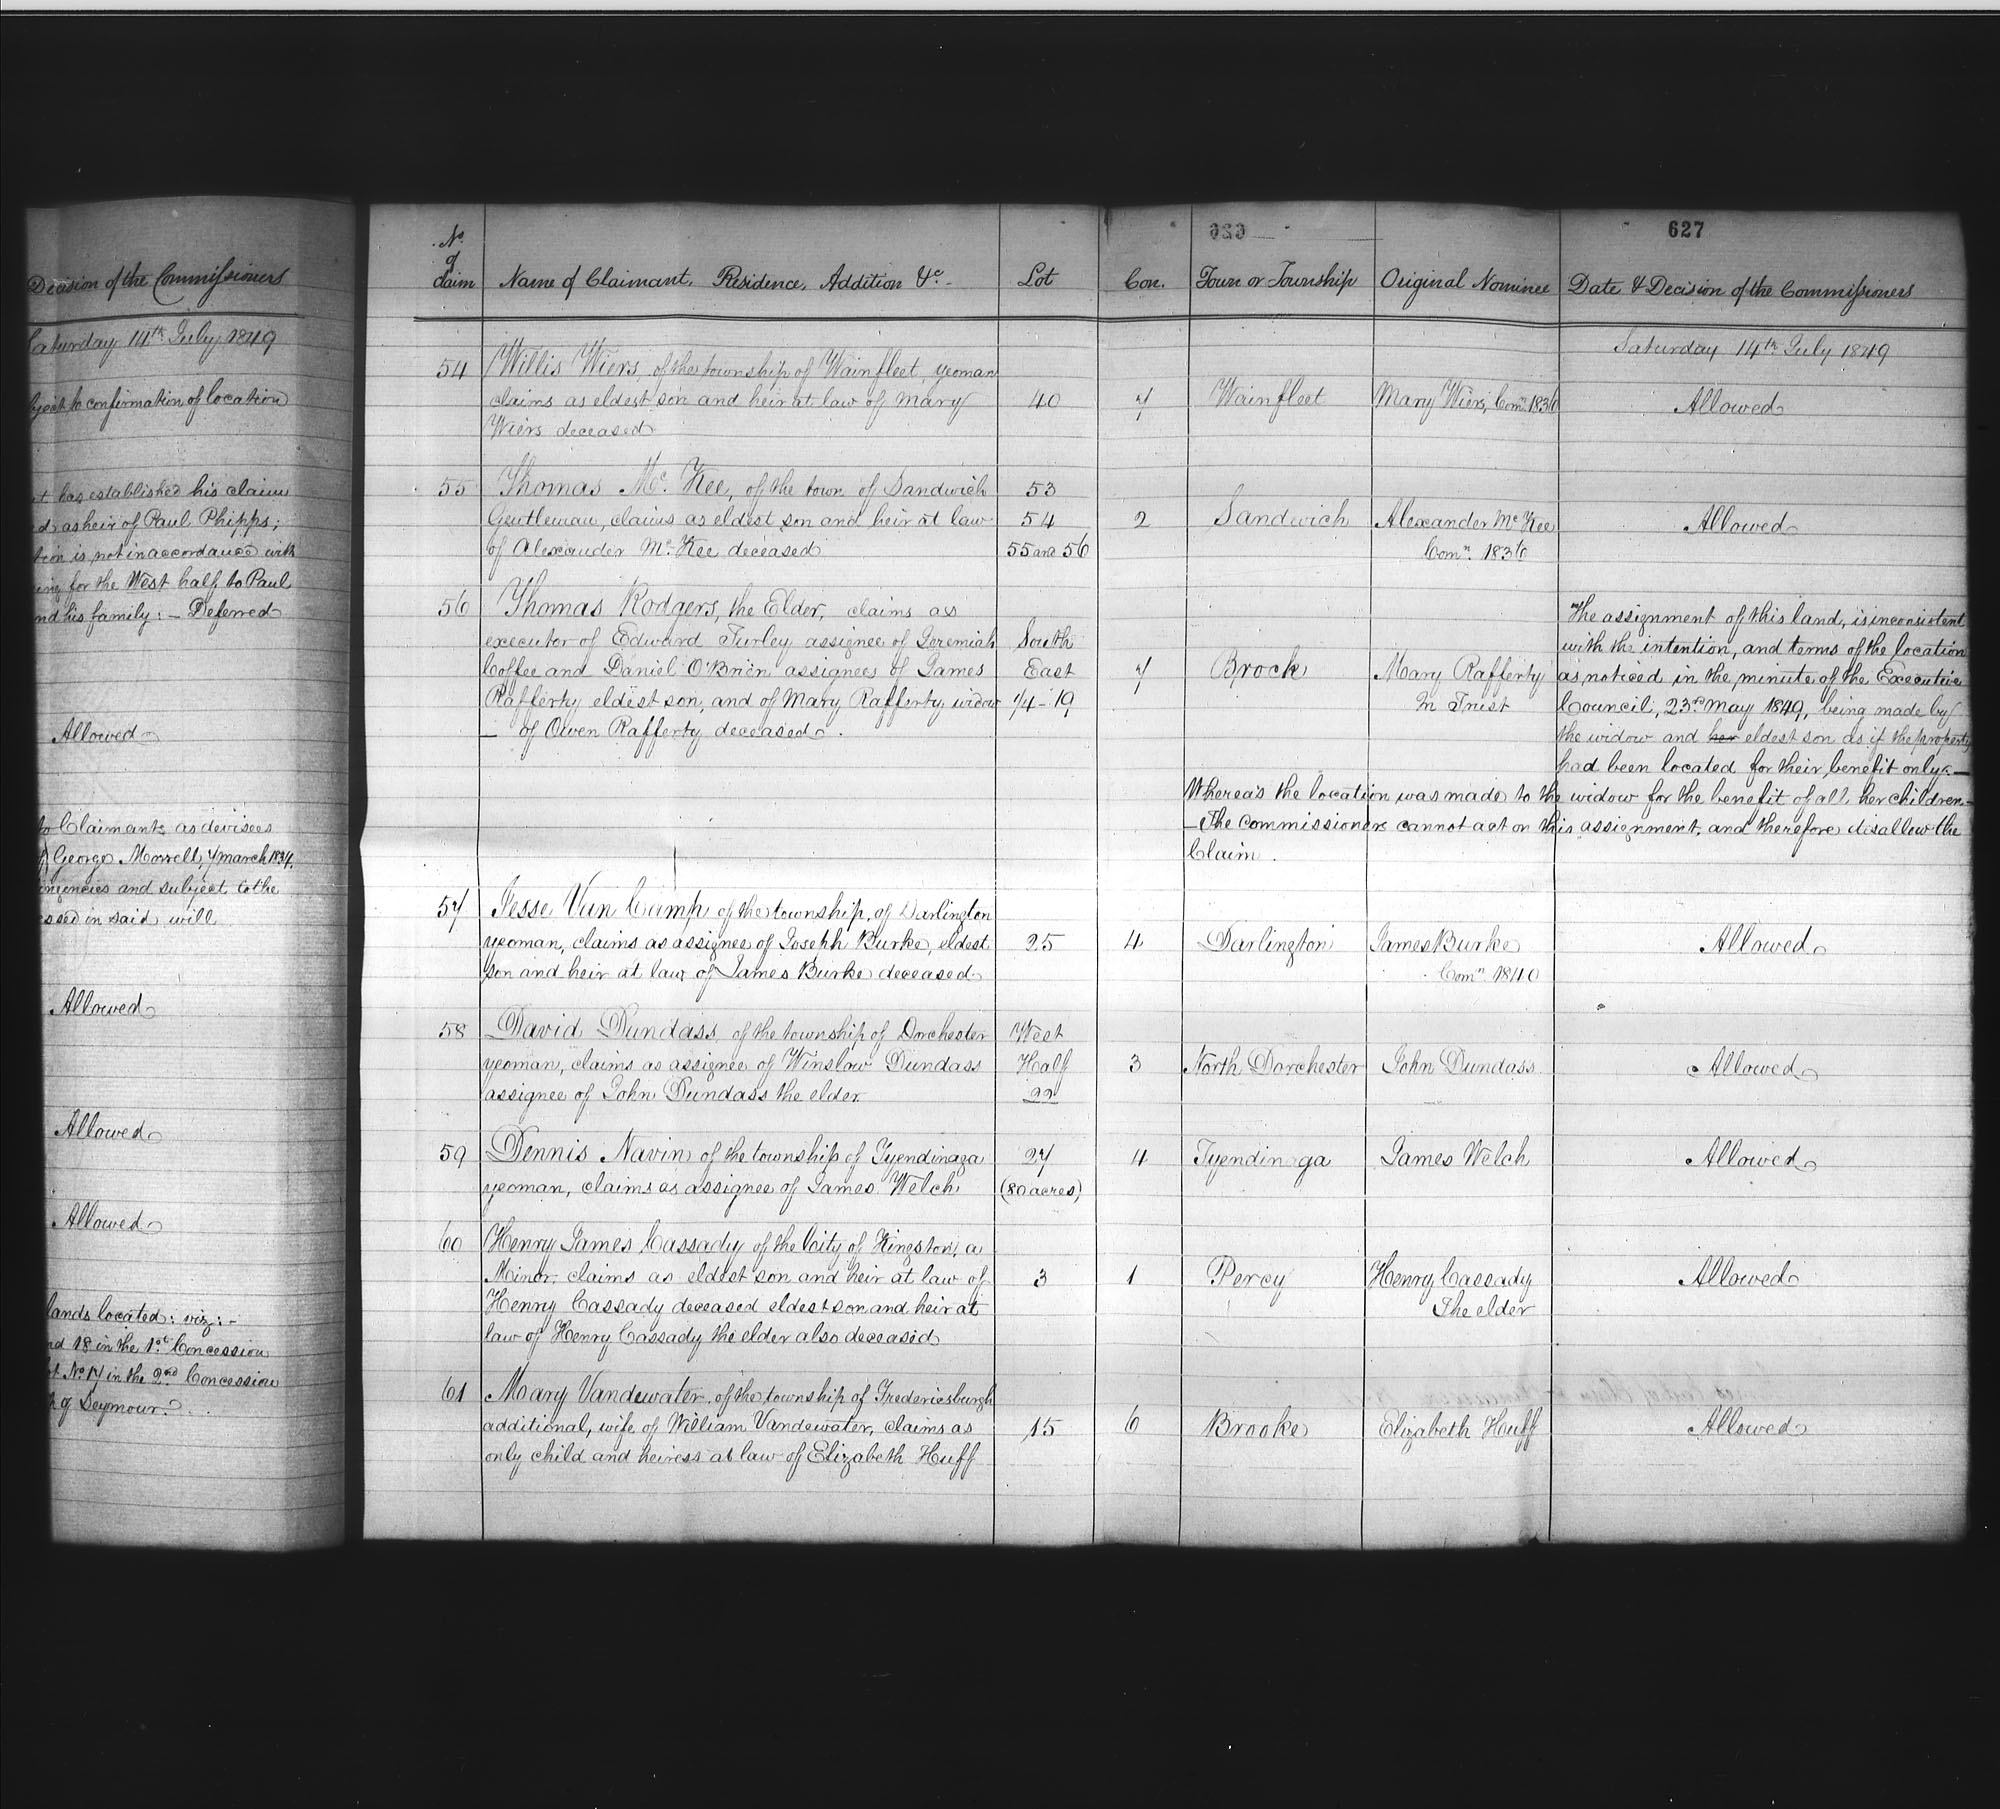 Decision of the Commissioners
Saturday 14th July 1849
to confirmation of location
has established his claim
as heir of Paul Phipps;
is not in accordance with
for the West half to Paul
and his family: – Deferred
Allowed
to Claimants as devisees
George Morrell, 7 March 1834.
and subject to the
in said will
Allowed
Allowed
Allowed
lands located: viz: –
and 18 in the 1st Concession
No 17 in the 2nd Concession
of Seymour.
627
No
of
claim
Name of Claimant, Residence, Addition &c. Lot Con. Town or Township Original Nominee Date & Decision of the Commissioners
Saturday 14th July 1849
54 Willis Wiers, of the township of Wainfleet, yeoman
claims as eldest son and heir at law of Mary 40 7 Wainfleet Mary Wiers, Comn. 1836 Allowed
Wiers deceased
55 Thomas Mc.Kee, of the town of Sandwich 53
Gentleman, claims as eldest son and heir at law 54 2 Sandwich Alexander McKee Allowed
of Alexander Mc.Kee deceased 55 and 56 Comn. 1836
56 Thomas Rodgers, the Elder, claims as The assignment of this land, is inconsistent
executor of Edward Turley assignee of Jeremiah South with the intention, and terms of the location
Coffee and Daniel O'Brien assignees of James East 7 Brock Mary Rafferty as noticed in the minute of the Executive
Rafferty eldest son, and of Mary Rafferty widow 1/4 - 19 In Trust Council, 23rd May 1849, being made by
of Owen Rafferty deceased. the widow and her eldest son as if the property
had been located for their benefit only. –
Whereas the location was made to the widow for the benefit of all her children –
– The commissioners cannot act on this assignment, and therefore disallow the
Claim.
57 Jesse Van Camp of the township, of Darlington
yeoman, claims as assignee of Joseph Burke, eldest 25 4 Darlington James Burke Allowed
son and heir at law of James Burke deceased Comn. 1840
58 David Dundass, of the township of Dorchester West
yeoman, claims as assignee of Winslow Dundass Half 3 North Dorchester John Dundass Allowed
assignee of John Dundass the elder. 22
59 Dennis Navin of the township of Tyendinaga 27 4 Tyendinaga James Welch Allowed
yeoman, claims as assignee of James Welch (80 acres)
60 Henry James Cassady of the City of Kingston, a
Minor, claims as eldest son and heir at law of 3 1 Percy Henry Cassady Allowed
Henry Cassady deceased eldest son and heir at The elder
law of Henry Cassady the elder also deceased
61 Mary Vandewater, of the township of Fredericsburgh
additional, wife of William Vandewater, claims as 15 6 Brooke Elizabeth Huff Allowed
only child and heiress at law of Elizabeth Huff